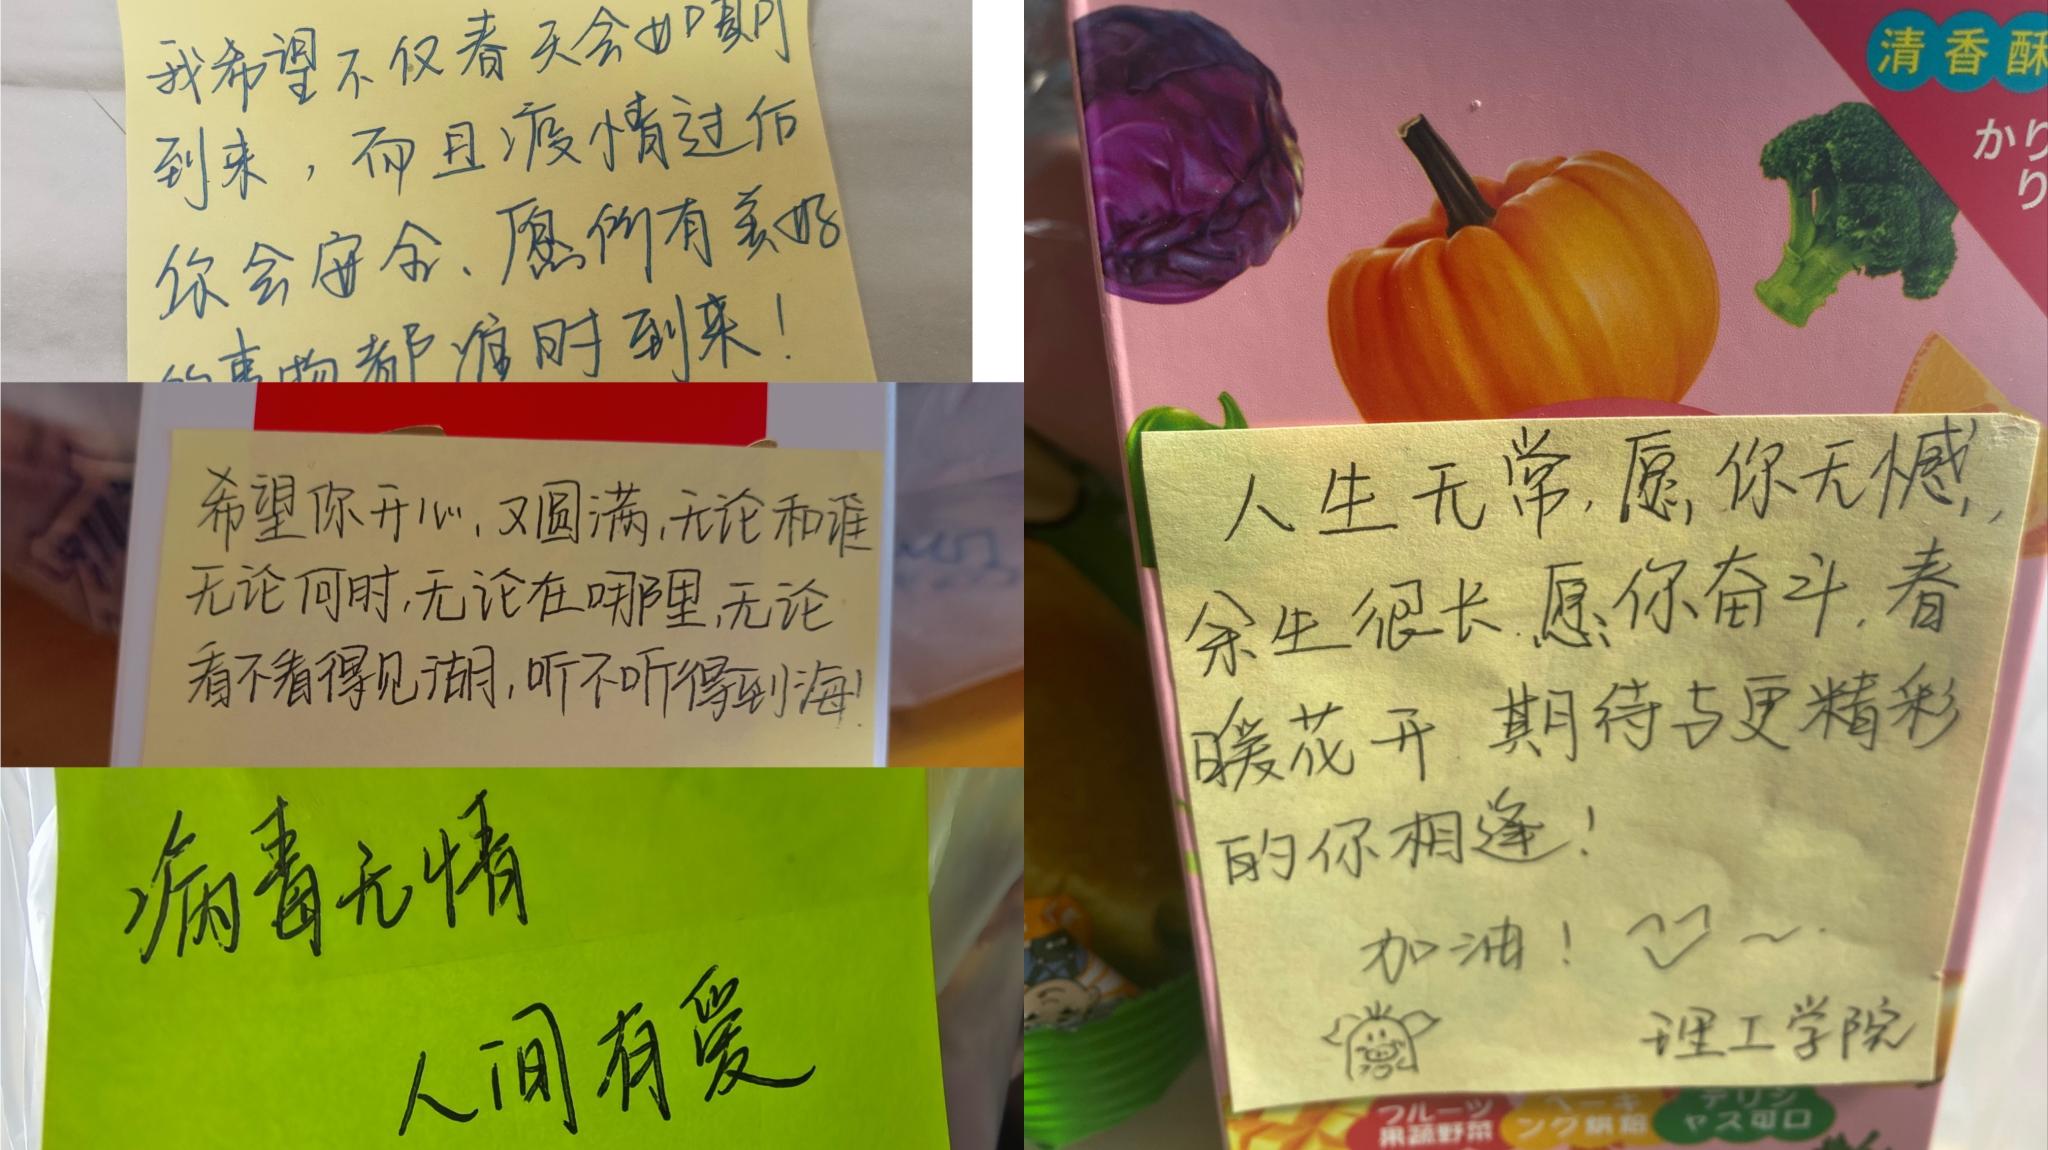 我希望不仅春天会如期
到来，而且疫情过后
你会安全、愿所有美好
的事物都准时到来！
希望你开心，又圆满，无论和谁
无论何时，无论在哪里，无论
看不看得见湖，听不听得到海！
病毒无情
人间有爱
清香酥
かり
り
人生无常，愿你无憾，
余生很长，愿你奋斗，春
暖花开 期待与更精彩
的你相逢！
加油！
理工学院
フルーツ
果蔬野菜
ベーキ
ング烘焙
デリシ
ャス可口